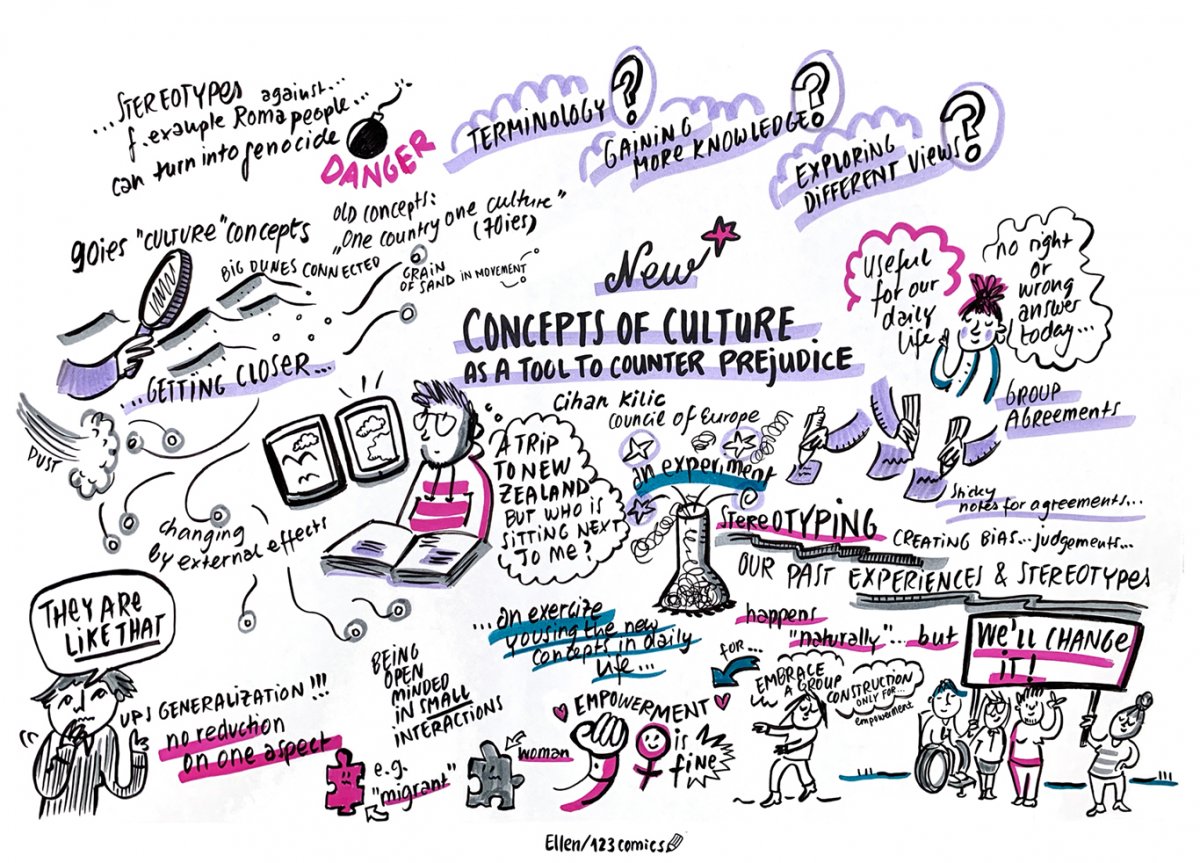 ...STEREOTYPES against...
f. example Roma people...
can turn into genocide
DANGER
TERMINOLOGY?
GAINING
MORE KNOWLEDGE?
EXPLORING
DIFFERENT VIEWS?
90ies "CULTURE" CONCEPTS
OLD CONCEPTS:
„One country one culture"
(70ies)
BIG DUNES CONNECTED
GRAIN
OF SAND IN MOVEMENT
...GETTING CLOSER...
DUST
changing
by external effects
New
CONCEPTS OF CULTURE
AS A TOOL TO COUNTER PREJUDICE
Cihan Kilic
Council of Europe
useful
for our
daily
life
no right
or
wrong
answer
today...
GROUP
AGREEMENTS
Sticky
notes for agreements...
A TRIP
TO NEW
ZEALAND
BUT WHO IS
SITTING NEXT
TO ME?
an experiment
StereOTYPING
CREATING BIAS... judgements...
OUR PAST EXPERIENCES & STEREOTYPES
happens
"naturally"... but
WE'LL CHANGE
IT!
...an exercize
yousing the new
concepts in daily
life...
THEY ARE
LIKE THAT
UPS GENERALIZATION!!!
no reduction
on one aspect
BEING
OPEN
MINDED
IN SMALL
INTERACTIONS
e.g.
"migrant"
woman
FOR...
EMPOWERMENT
is
fine
EMBRACE
A GROUP
CONSTRUCTION
ONLY FOR...
empowerment
Ellen/123comics